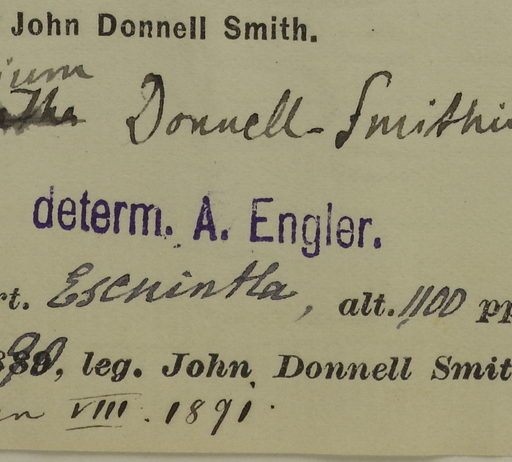 John Donnell Smith.
ium
Donnell-Smithii
determ. A. Engler.
rt. Escuintla, alt. 1100 pp
90, leg. John Donnell Smit
VIII. 1891.